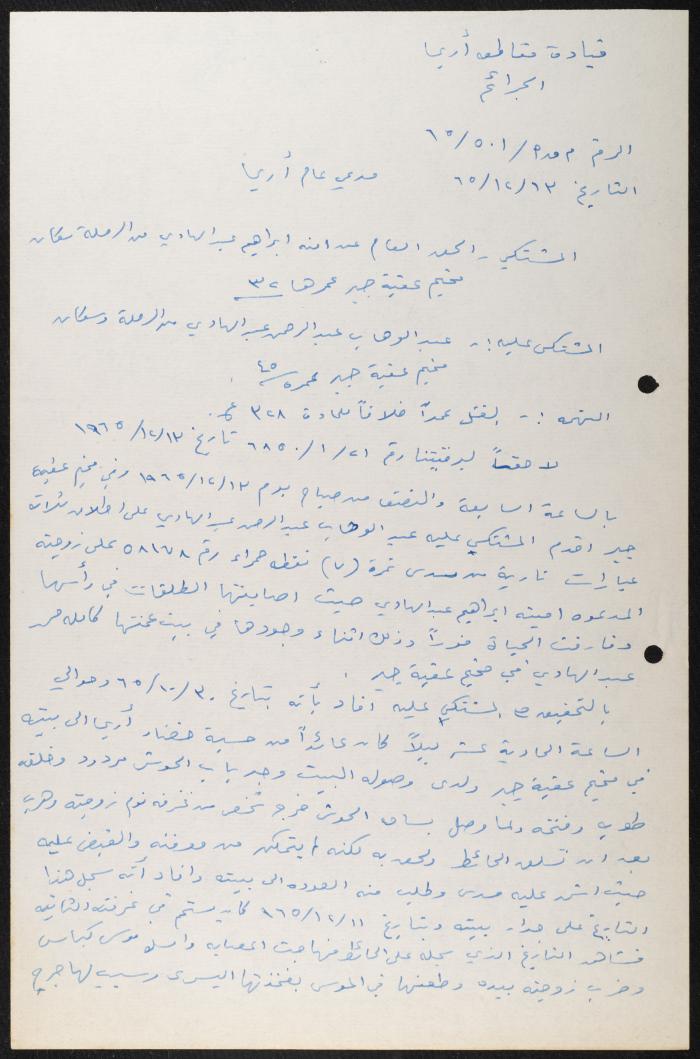 قيادة مقاطعة أريحا
الجرائم
الرقم م ق أ / ٥٠١ / ٦٥
التاريخ ٦٥/١٢/١٣
مدعي عام أريحا
المشتكي - الحق العام عن امنه ابراهيم عبد الهادي من الرملة سكان
مخيم عقبة جبر عمرها ٣٢
المشتكى عليه :- عبد الوهاب عبد الرحمن عبد الهادي من الرملة وسكان
مخيم عقبة جبر عمره ٤٥
التهمه :- القتل عمداً خلافاً للمادة ٣٢٨ ع
لاحقاً لبرقيتنا رقم ٢١ / ١ / ٦٨٥٠ تاريخ ١٩٦٥/١٢/١٣
بالساعة السابعة والنصف من صباح يوم ١٩٦٥/١٢/١٣ وفي مخيم عقبة
جبر اقدم المشتكي عليه عبد الوهاب عبد الرحمن عبد الهادي على اطلاق ثلاثة
عيارات نارية من مسدس نمرة (٧) نقطه حمراء رقم ٥٨١٦٧٨ على زوجته
المدعوه امينه ابراهيم عبد الهادي حيث اصابتها الطلقات في رأسها
وفارقت الحياة فوراً وذلك اثناء وجودها في بيت عمتها كامله
عبد الهادي في مخيم عقبة جبر .
بالتحقيق مع المشتكي عليه افاد بأنه بتاريخ ٦٥/١٠/٣٠ وحوالي
الساعة الحادية عشر ليلاً كان عائداً من حسبة خضار أريحا الى بيته
في مخيم عقبة جبر ولدى وصوله البيت وجد باب الحوش مردود وخلفه
طوب وفتحه ولما وصل بساحة الحوش خرج شخص من غرفه نوم زوجته وهرب
بعد ان تسلق الحائط ولحق به لكنه لم يتمكن من معرفته والقبض عليه
حيث اشهر عليه مسدس وطلب منه العوده الى بيته وافاد أنه سجل هذا
التاريخ على جدار بيته وبتاريخ ٩٦٥/١٢/١١ كان يستحم في غرفته الثانيه
فشاهد التاريخ الذي سجله على الحائط فهاجت اعصابه وامسك موسى كباس
وضرب زوجته بيده وطعنها في الموسى بفخذتها اليسرى وسبب لها جرح